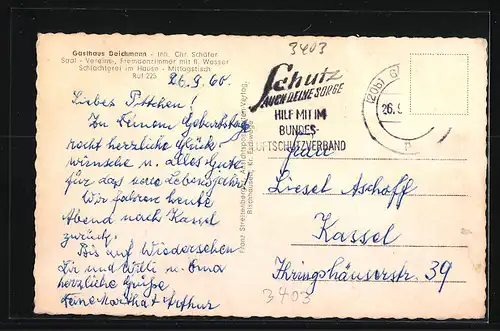 Gasthaus Deichmann - Inh. Chr. Schäfer
Saal - Vereins-, Fremdenzimmer mit fl. Wasser
Schlachterei im Hause - Mittagstisch
Ruf 225
26.9.60.
Liebes Tittchen!
Zu Deinem Geburtstage
recht herzliche Glück-
wünsche u. alles Gute
für das neue Lebensjahr.
Wir fahren heute
Abend nach Kassel
zurück.
Bis auf Wiedersehen
Dir und Willi u. Oma
herzliche Grüße
Deine Martha + Arthur
Bischhausen, Kr. Eschwege
3403
Schutz
AUCH DEINE SORGE
HILF MIT IM
BUNDES-
LUFTSCHUTZVERBAND
(20b)
26.9
Frau
Liesel Aschoff
Kassel
Ihringshäuserstr. 39
3403